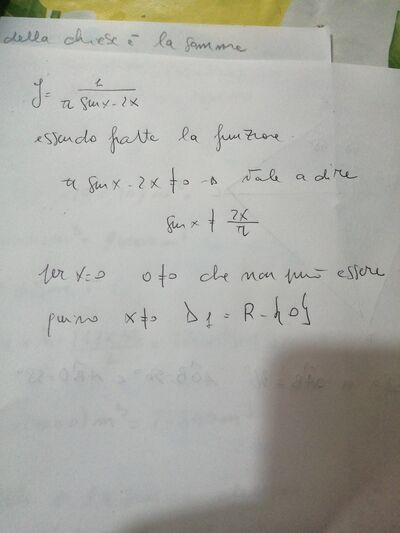 della chiesa è la somma
y = 1 / π sin x - 2x
essendo fratta la funzione
π sin x - 2x ≠ 0 → vale a dire
sin x ≠ 2x / π
per x=0 0≠0 che non può essere
quindi x≠0 Df = R - {0}